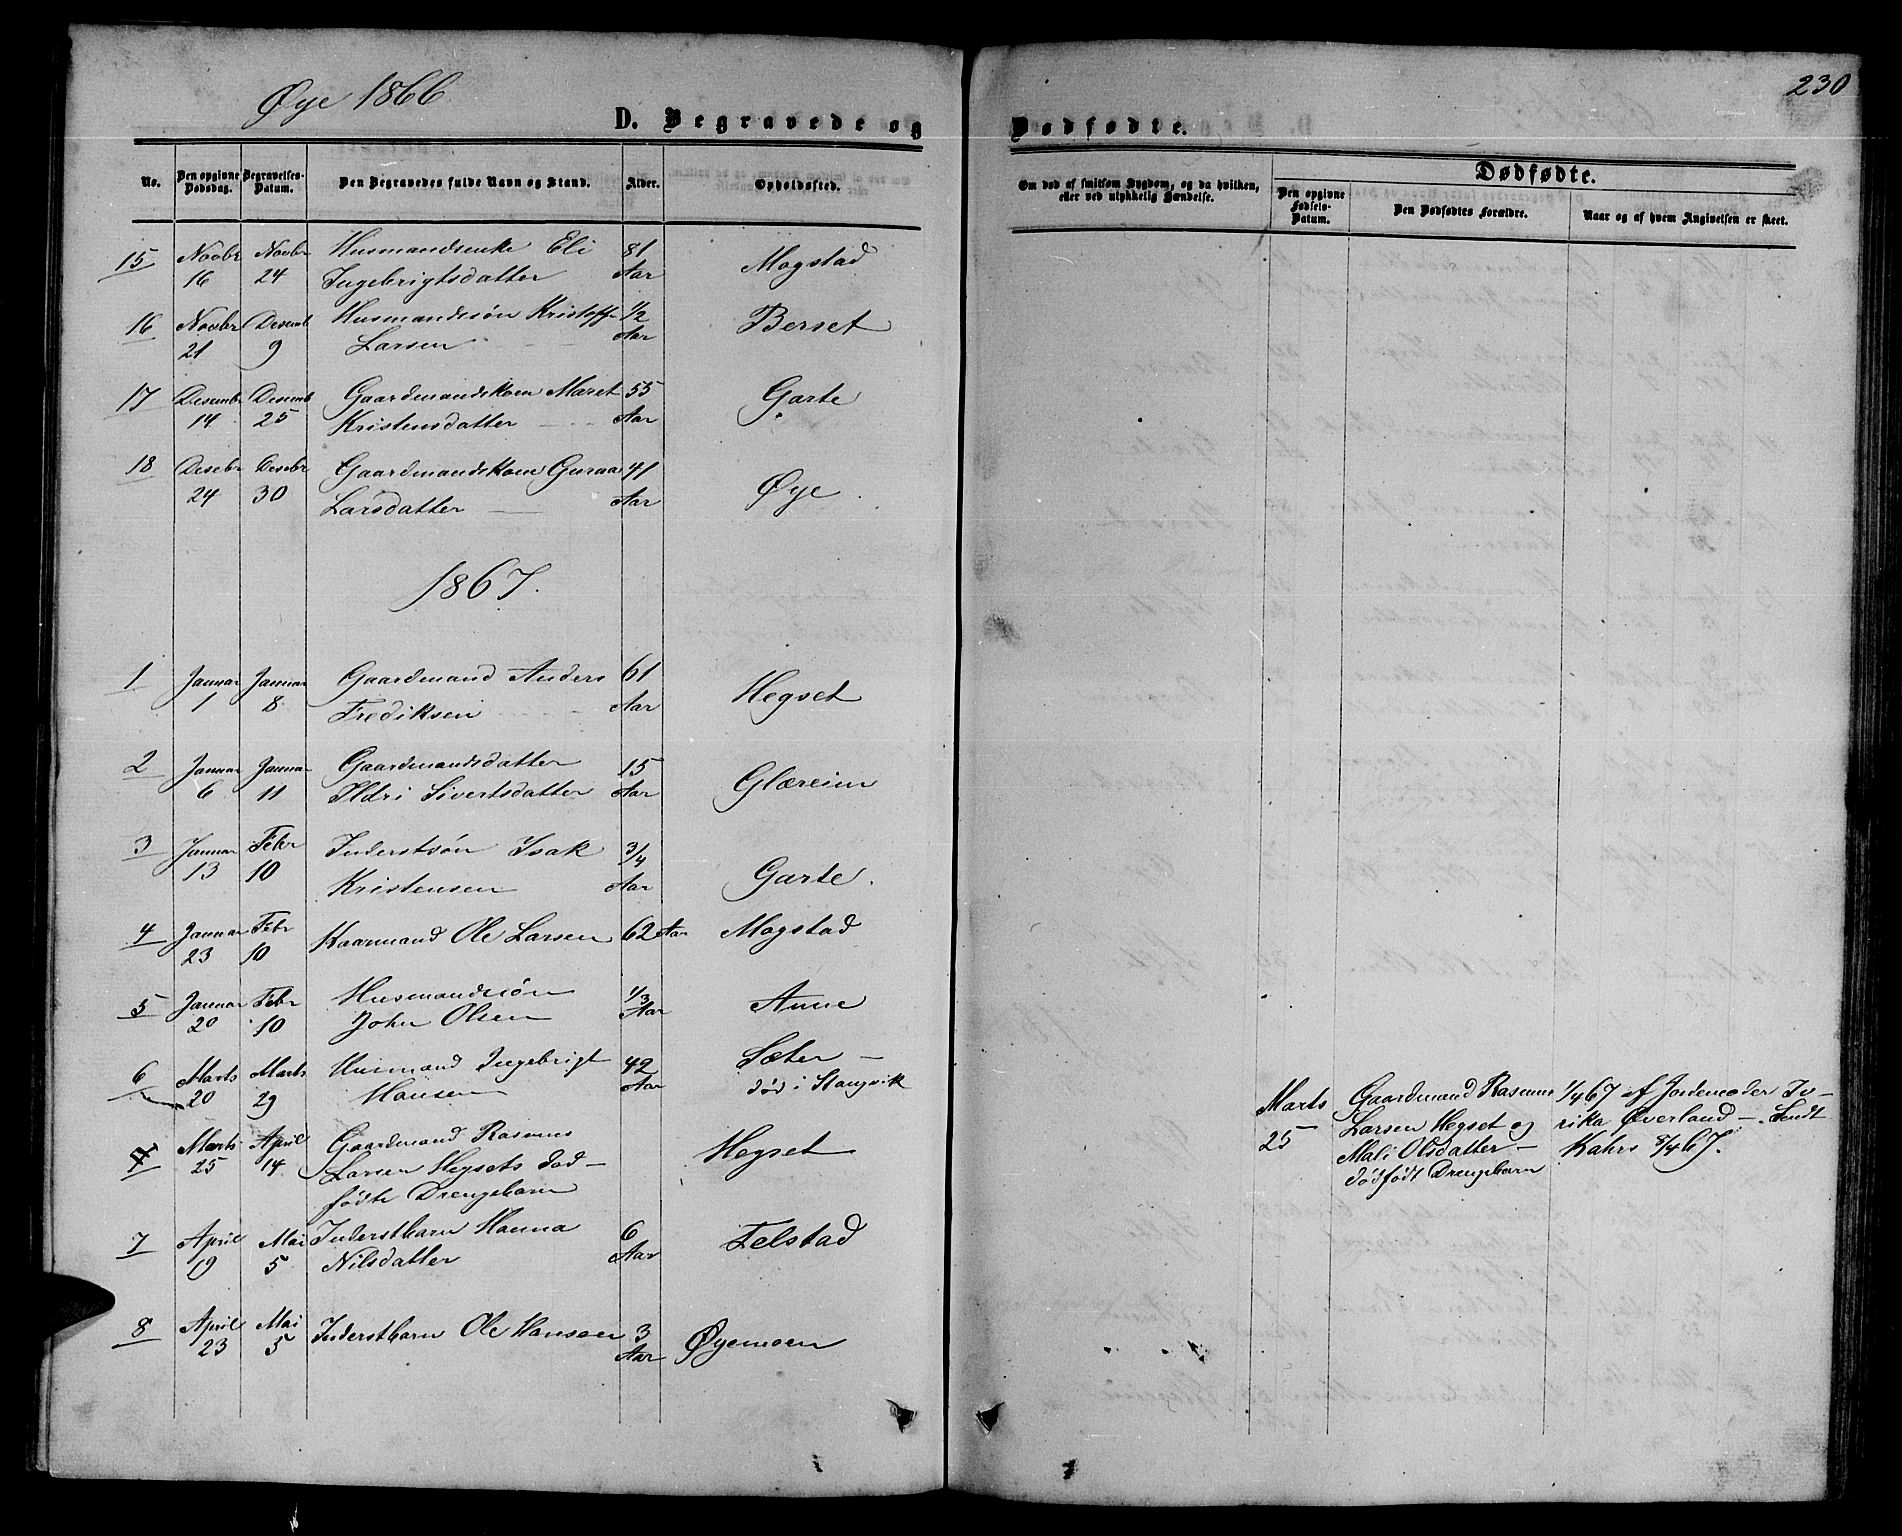 Øye 1866
230
D. Begravede og Dødfødte.
No. Den opgivne Dødsdag. Begravelses-Datum. Den Begravedes fulde Navn og Stand. Alder. Opholdssted.
Om død af smitsom Sygdom, og da hvilken, eller ved ulykkelig Hændelse.
Dødfødte.
Den opgivne Fødsels-Datum. Den Dødfødtes Forældre. Naar og af hvem Angivelsen er skeet.
15 Novbr Novbr Husmandsenke Eli 81 Mogstad
16 24 Ingebrigtsdatter Aar
16 Novbr Desemb Husmandssøn Kristoff 1/2 Berset
21 9 Larsen Aar
17 Desembr Desemb Gaardmandskone Maret 55 Garte
14 25 Kristensdatter Aar
18 Desebr Desebr Gaardmandskone Guraa 41 Øye
24 30 Larsdatter Aar
1867.
1 Januar Januar Gaardmand Anders 61 Hegset
1 8 Frediksen Aar
2 Januar Januar Gaardmandsdatter 15 Glæreim
6 11 Ildri Sivertsdatter Aar
3 Januar Febr Inderstsøn Isak 3/4
13 10 Kristensen Aar Garte.
4 Januar Febr Kaarmand Ole Larsen 62 Aar Mogstad
23 10
5 Januar Febr Husmandssøn 1/3 Aune
20 10 John Olsen Aar
6 Marts Marts Husmand Ingebrigt 42 Sæter –
20 29 Hansen Aar død i Stangvik
7 Marts April Gaardmand Rasmus Hegset
25 14 Larsen Hegsets død–
fødte Drengebarn
Marts Gaardmand Rasmus 1/4 67 af Jordemoder Iv–
25 Larsen Hegset og rika Øverland – Sendt
Mali Olsdatter – Kahrs 8/4 67.
dødfødt Drengebarn
7 April Mai Inderstbarn Hanna 6 Felstad
19 5 Nilsdatter Aar
8 April Mai Inderstbarn Ole Hansen 3 Øyemoen
23 5 Aar